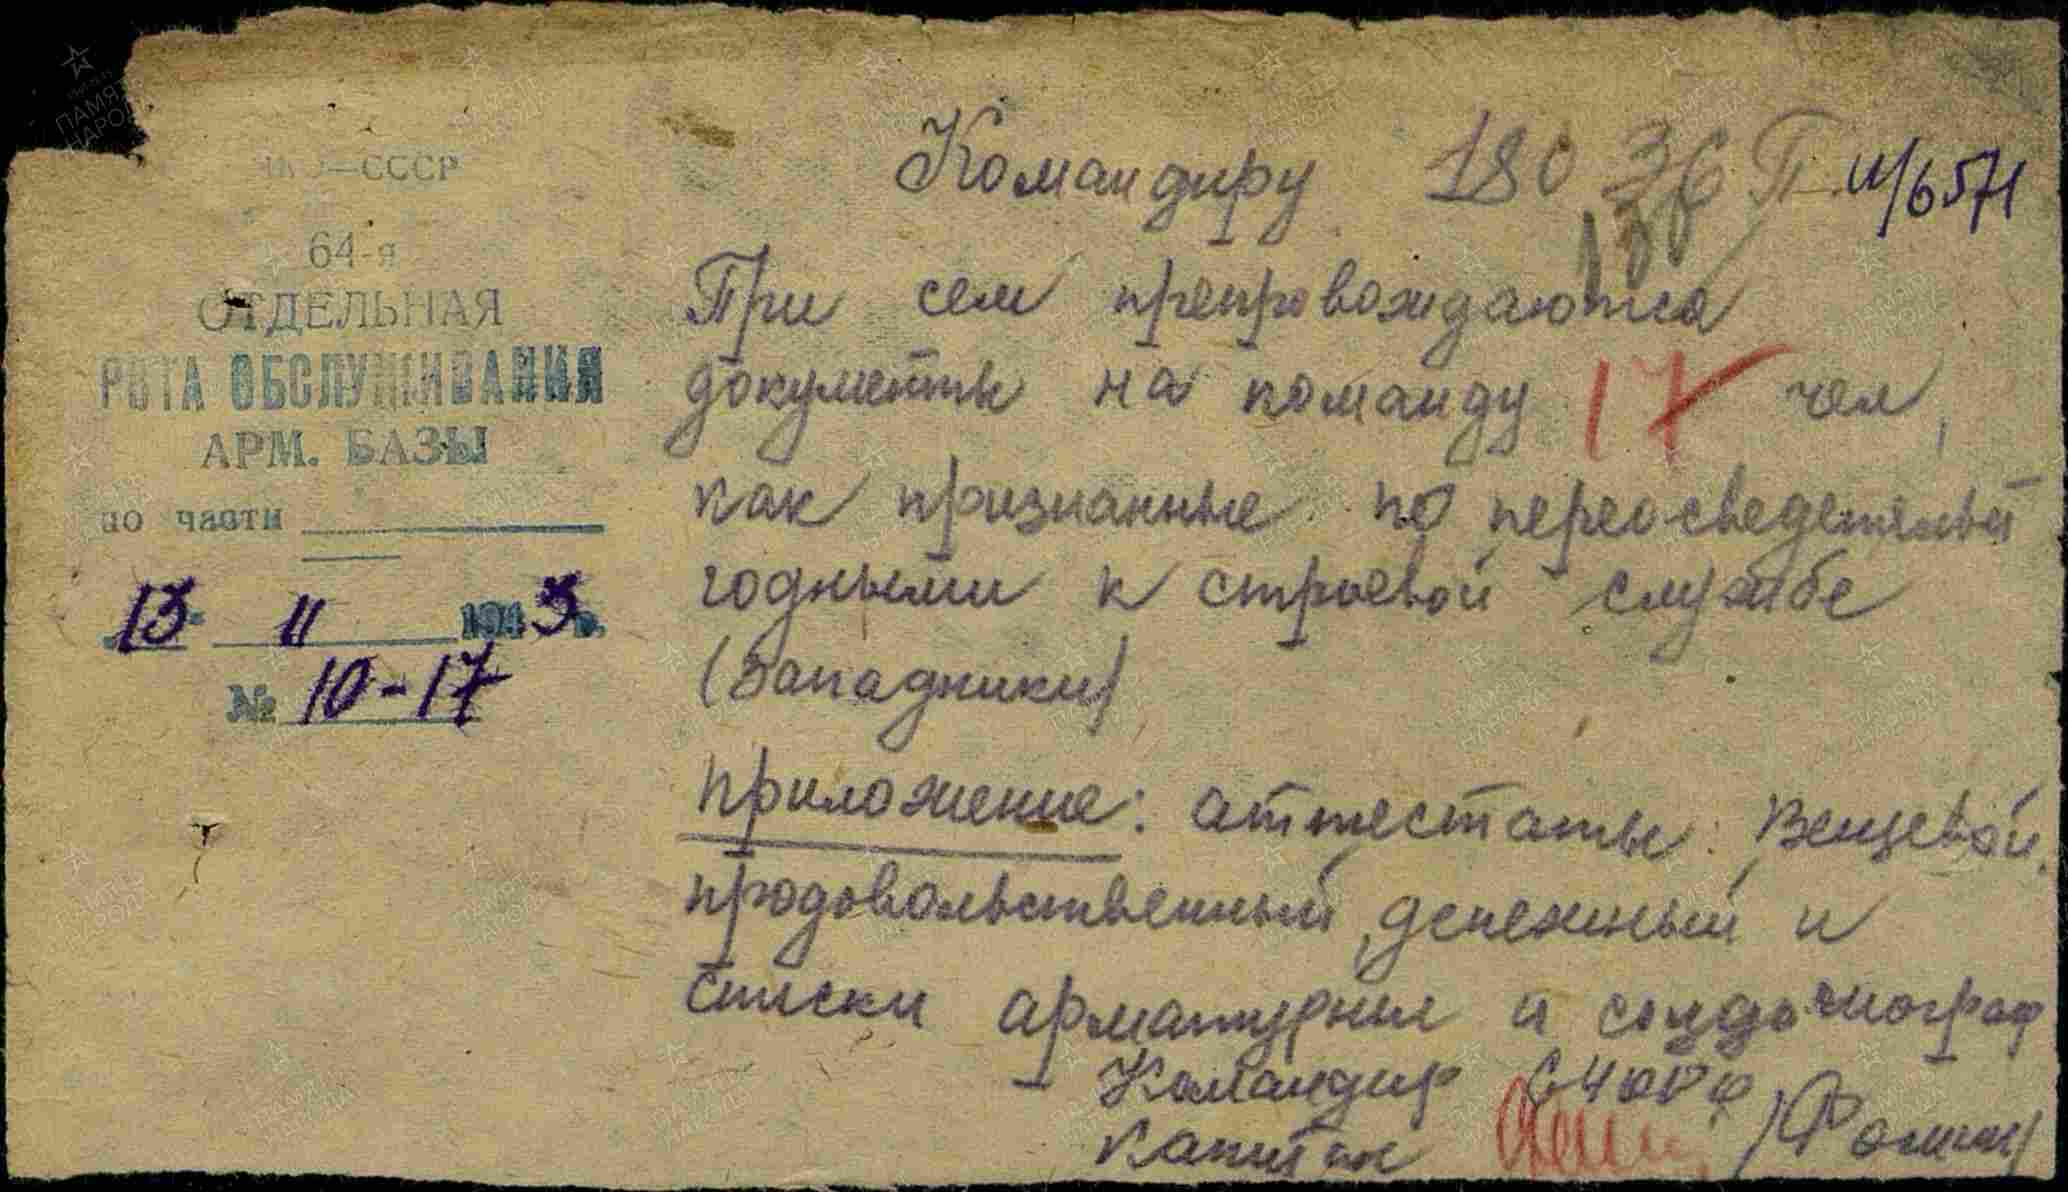 НКО—СССР
64-я
ОТДЕЛЬНАЯ
РОТА ОБСЛУЖИВАНИЯ
АРМ. БАЗЫ
по части
13 11 1943 г.
№ 10-17
Командиру 180 ЗСП
ш/6571
188
При сем препровождаются
документы на команду 17 чел,
как признанные по переосведетельст
годными к строевой службе
(Западники)
Приложение: аттестаты: Вещевой,
продовольственный, денежный и
списки арматурный и
Командир 64 ОРО
капитан /Фомин/